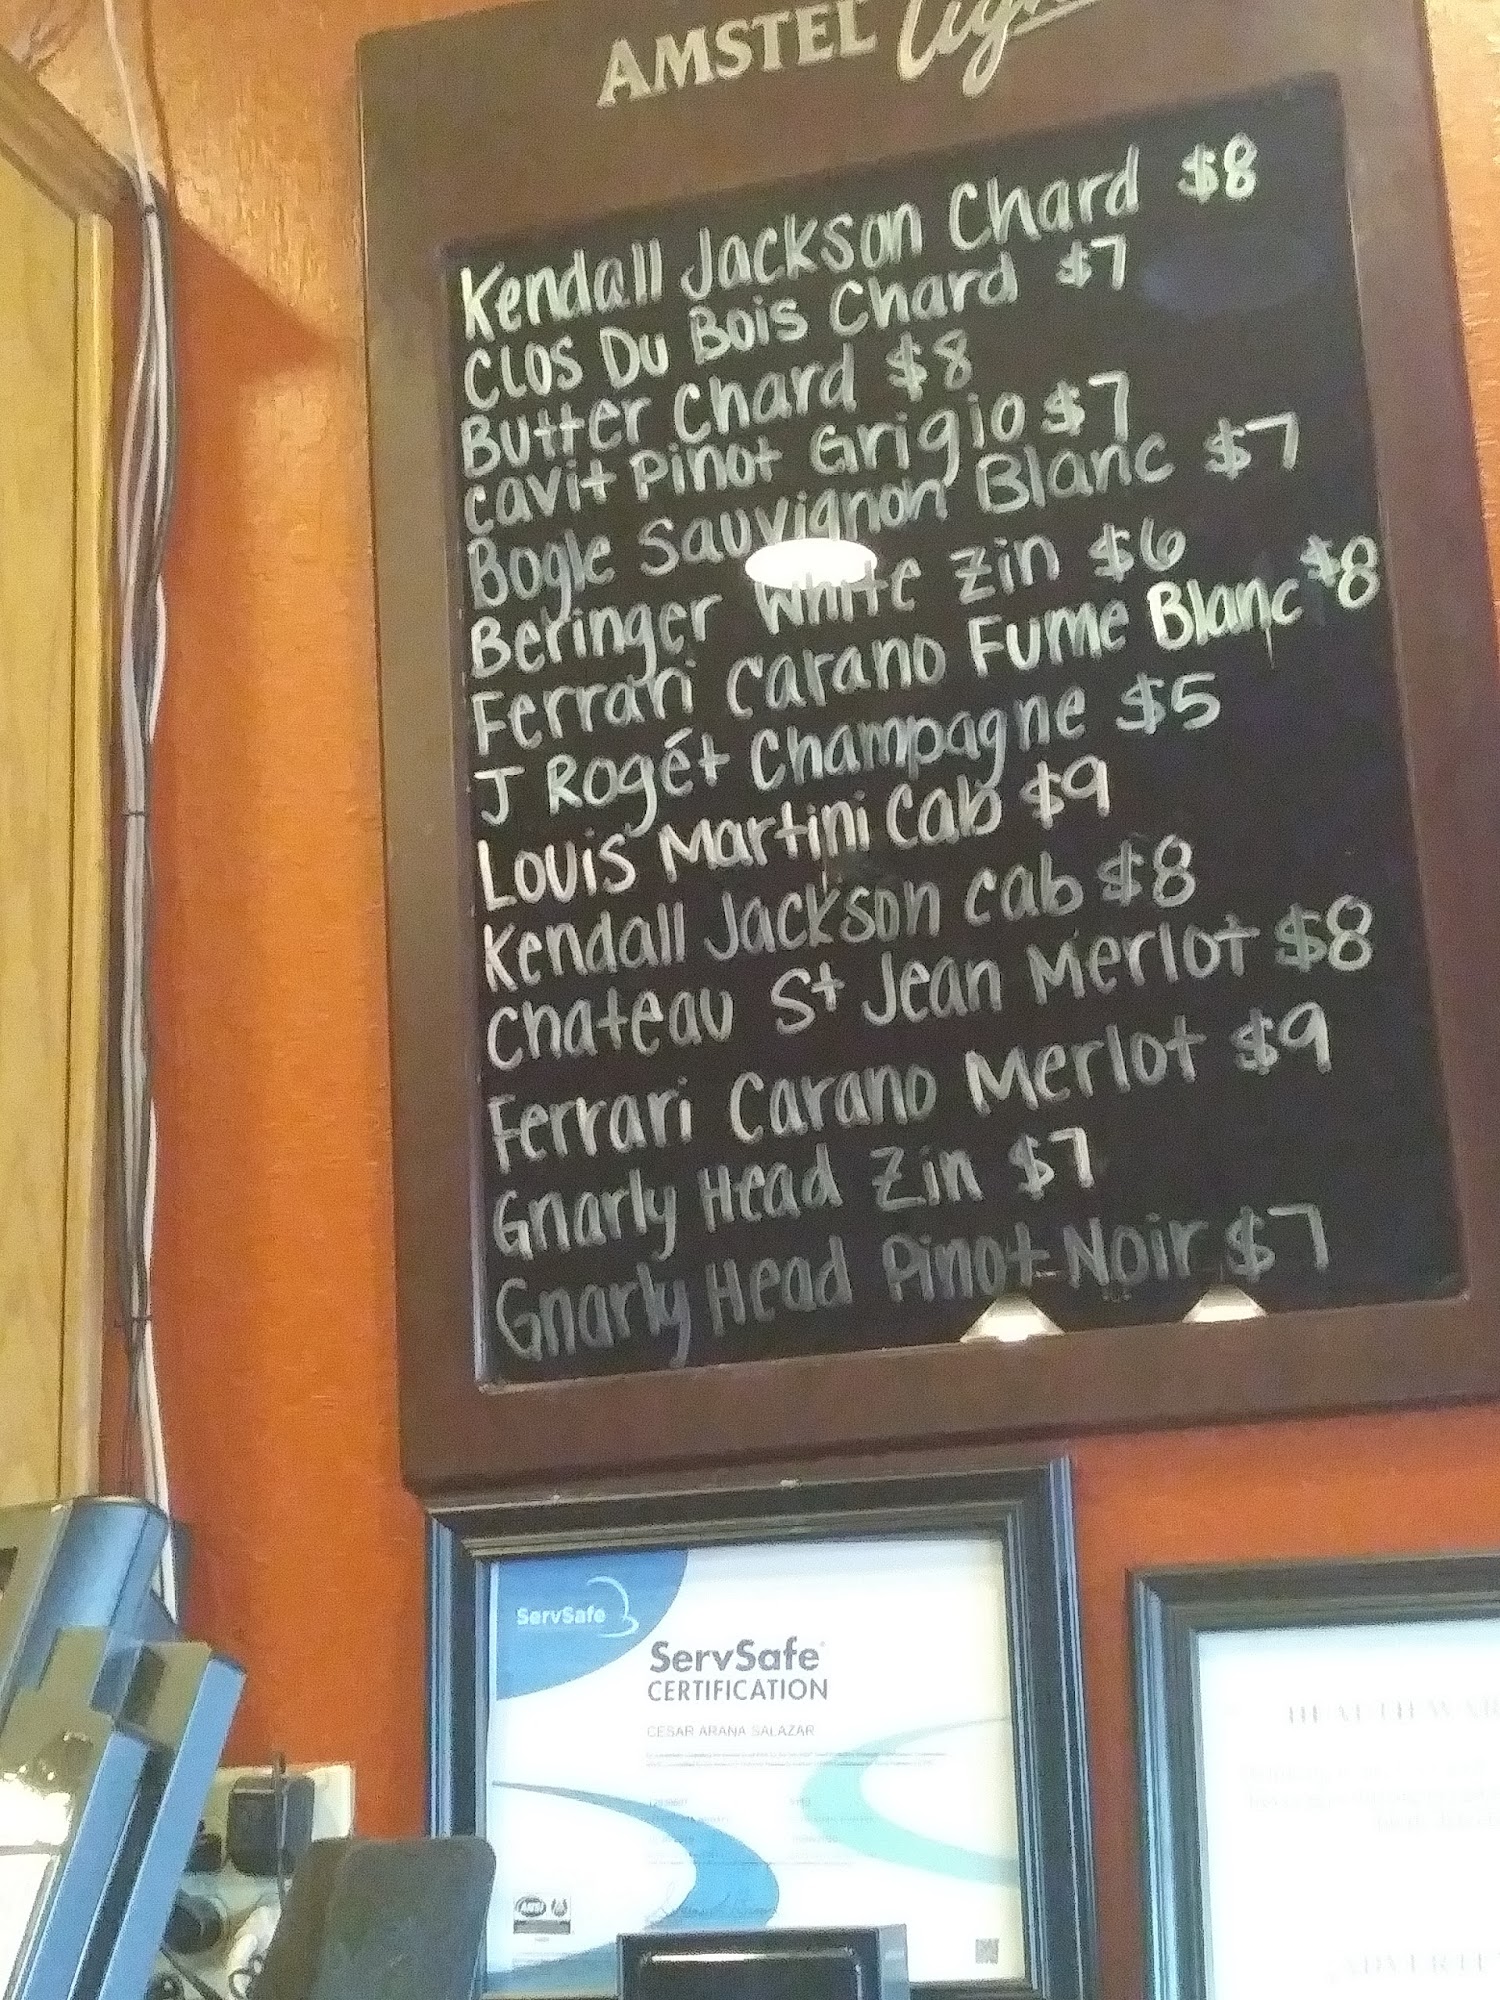 AMSTEL Light
Kendall Jackson Chard $8
Clos Du Bois Chard $7
Butter Chard $8
Cavit Pinot Grigio $7
Bogle Sauvignon Blanc $7
Beringer White Zin $6
Ferrari Carano Fume Blanc $8
J Rogét Champagne $5
Louis Martini Cab $9
Kendall Jackson Cab $8
Chateau St Jean Merlot $8
Ferrari Carano Merlot $9
Gnarly Head Zin $7
Gnarly Head Pinot Noir $7
ServSafe
ServSafe
CERTIFICATION
CESAR ARANA SALAZAR
ANSI